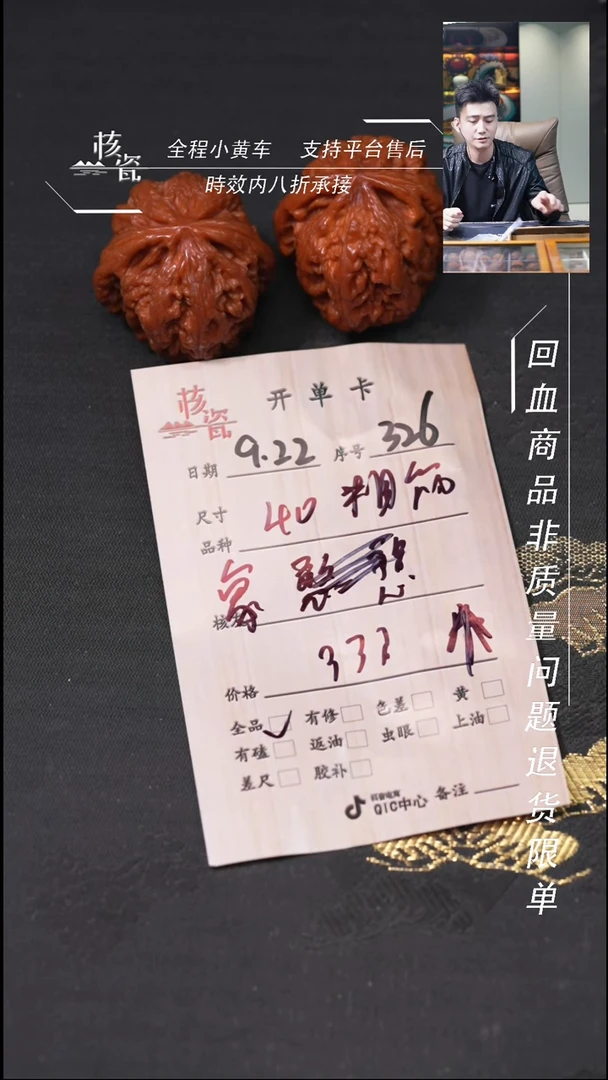 核瓷
全程小黄车 支持平台售后
時效内八折承接
回血商品非质量问题退货限单
核瓷
开单卡
日期 9.22 序号 326
尺寸 40 粗筋
品种
象
价格 333
全品 有修 色差 黄
有磕 返油 虫眼 上油
差尺 胶补
抖音电商
QIC中心 备注